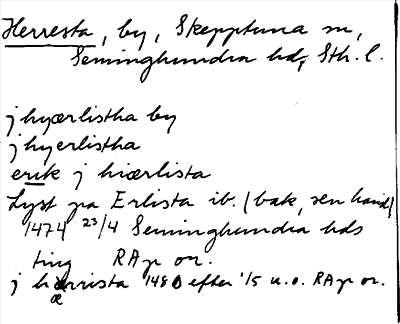 Herresta, by, Skepptuna sn,
Seminghundra hd, Sth. l.
j hyærlistha by
j hyerlistha
erik j hiærlista
Lyst pa Erlista ib. (bak, sen hand)
1474 23/4 Seminghundra hds
ting RAp or.
j hærrista 1480 efter 15 u.o. RAp or.